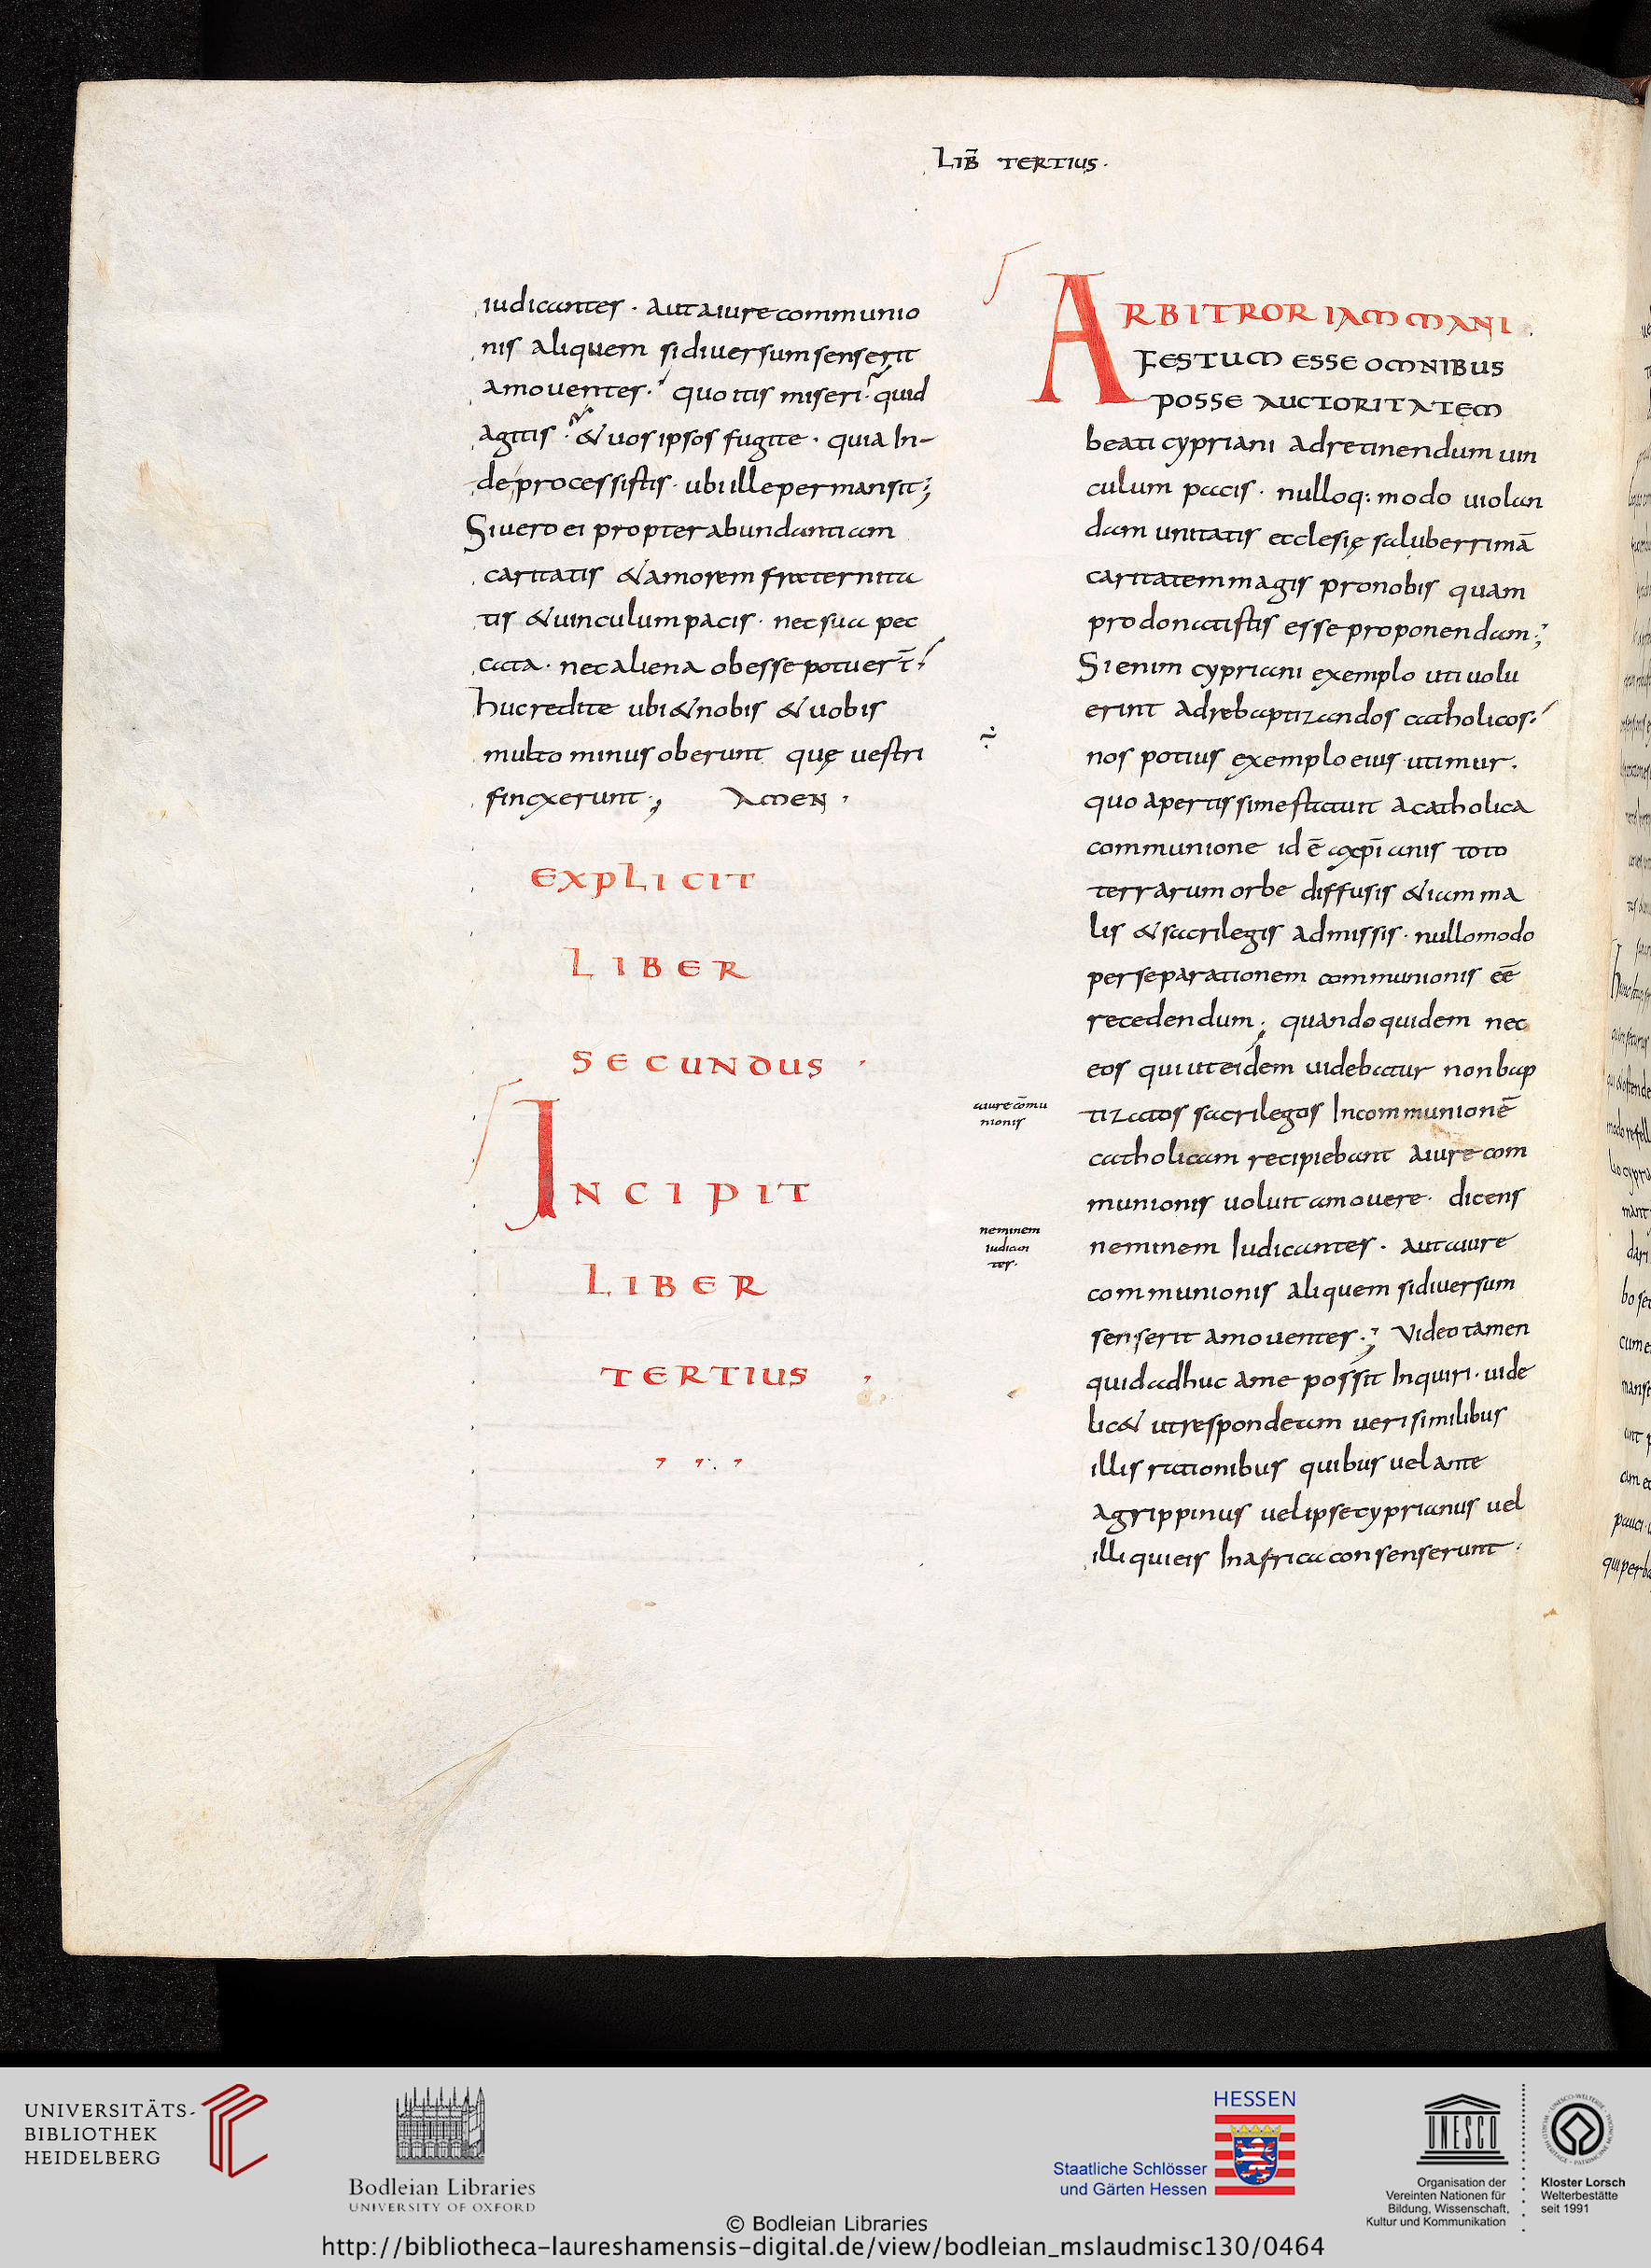 LIB̄ TERTIUS·
iudicantes · aut a iure communio
nis aliquem si diuersum senserit
amouentes· quo itis miseri· quid
agitis · & uos ipsos fugite · quia In-
de processistis · ubi ille permansit;
Si uero ei propter abundantiam
caritatis & amorem fraternita
tis & uinculum pacis · nec sua pec
cata · nec aliena obesse potuer̄t
huc redite ubi & nobis & uobis
multo minus oberunt quę uestri
fincxerunt; AMEN ,
EXPLICIT
LIBER
SECUNDUS
INCIPIT
LIBER
TERTIUS
ARBITROR IAM MANI
FESTUM ESSE OMNIBUS
POSSE AUCTORITATEM
beati cypriani ad retinendum uin
culum pacis · nulloq: modo uiolan
dam unitatis ecclesię saluberrimā
caritatem magis pro nobis quam
pro donatistis esse proponendam;
Si enim cypriani exemplo uti uolu
erint ad rebaptizandos catholicos·
nos potius exemplo eius utimur.
quo apertissime statuit a catholica
communione id ē a xp̄ianis toto
terrarum orbe diffusis & iam ma
lis & sacrilegis admissis · nullo modo
per separationem communionis eē
recedendum; quando quidem nec
eos qui ut eidem uidebatur non bap
a iure cōmu
nionis
tizatos sacrilegos In communionē
catholicam recipiebant a iure com
munionis uoluit amouere · dicens
neminem
iudican
tes·
neminem Iudicantes · aut a iure
communionis aliquem si diuersum
senserit amouentes; Video tamen
quid adhuc a me possit Inquiri · uide
lic& ut respondeam uerisimilibus
illis rationibus quibus uel ante
agrippinus uel ipse cyprianus uel
illi qui eis In africa consenserunt ·
UNIVERSITÄTS-
BIBLIOTHEK
HEIDELBERG
Bodleian Libraries
UNIVERSITY OF OXFORD
HESSEN
Staatliche Schlösser
und Gärten Hessen
UNESCO
Organisation der
Vereinten Nationen für
Bildung, Wissenschaft,
Kultur und Kommunikation
Kloster Lorsch
Welterbestätte
seit 1991
© Bodleian Libraries
http://bibliotheca-laureshamensis-digital.de/view/bodleian_mslaudmisc130/0464